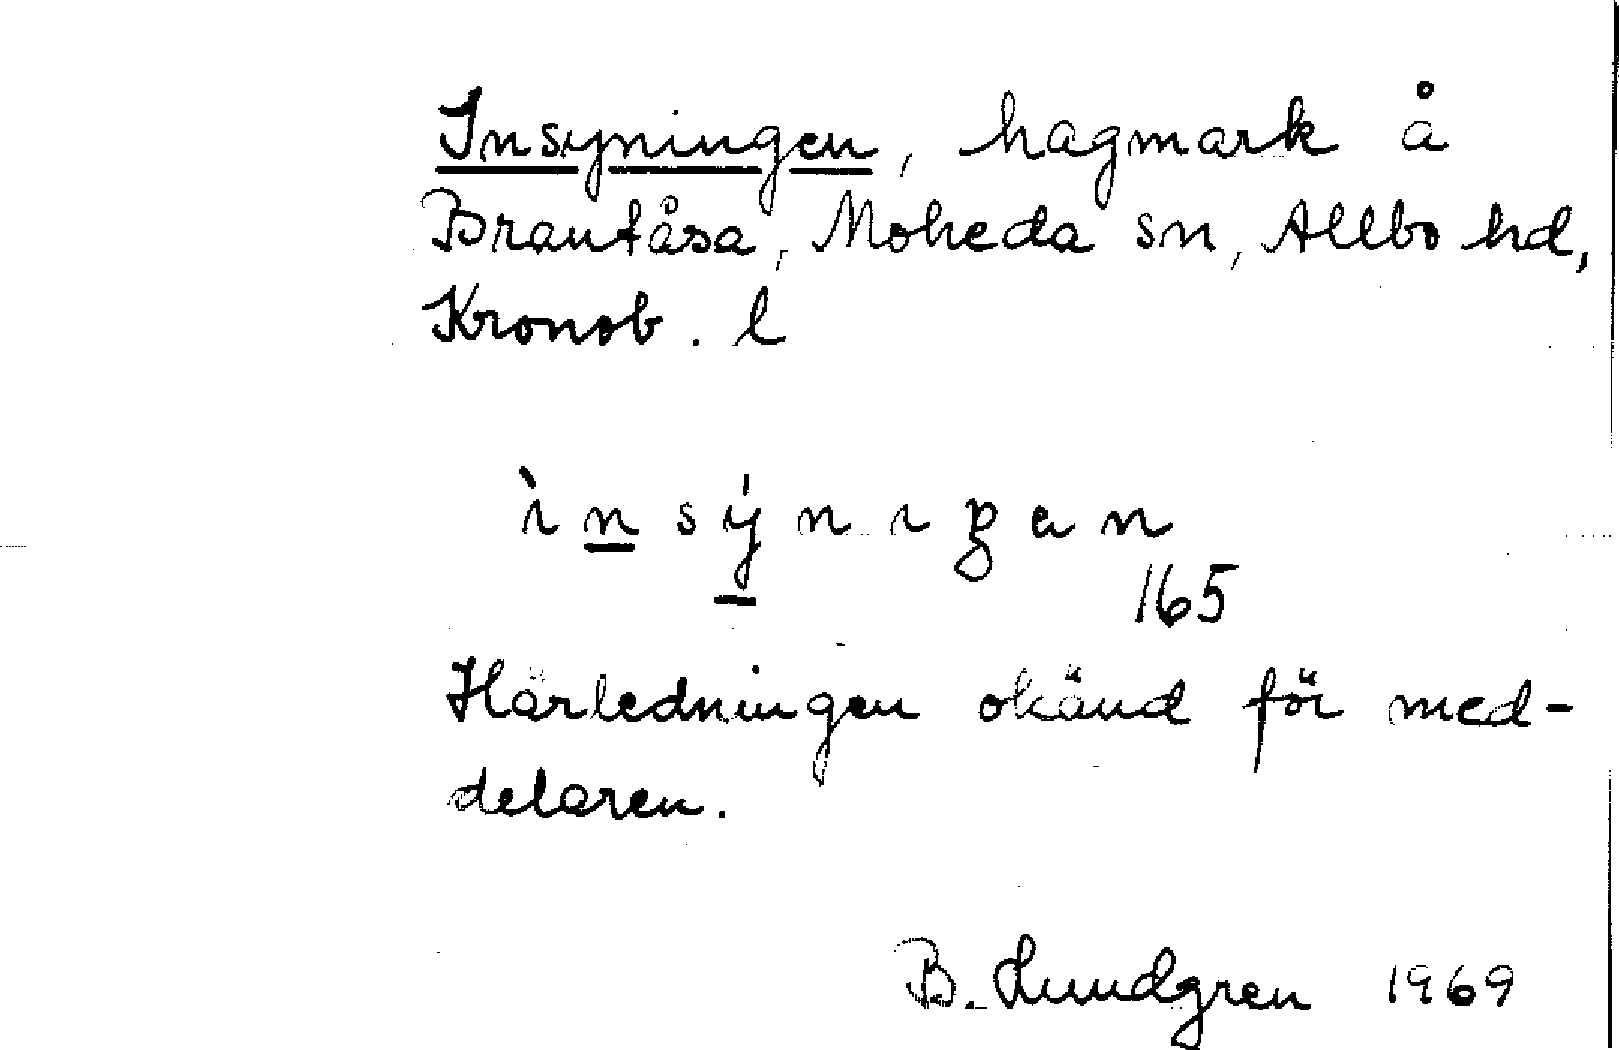 Insyningen, hagmark å
Brantåsa, Moheda sn, Allbo hd,
Kronob. l
ìnsýnıŋen
165
Härledningen okänd för med-
delaren.
B. Lundgren 1969